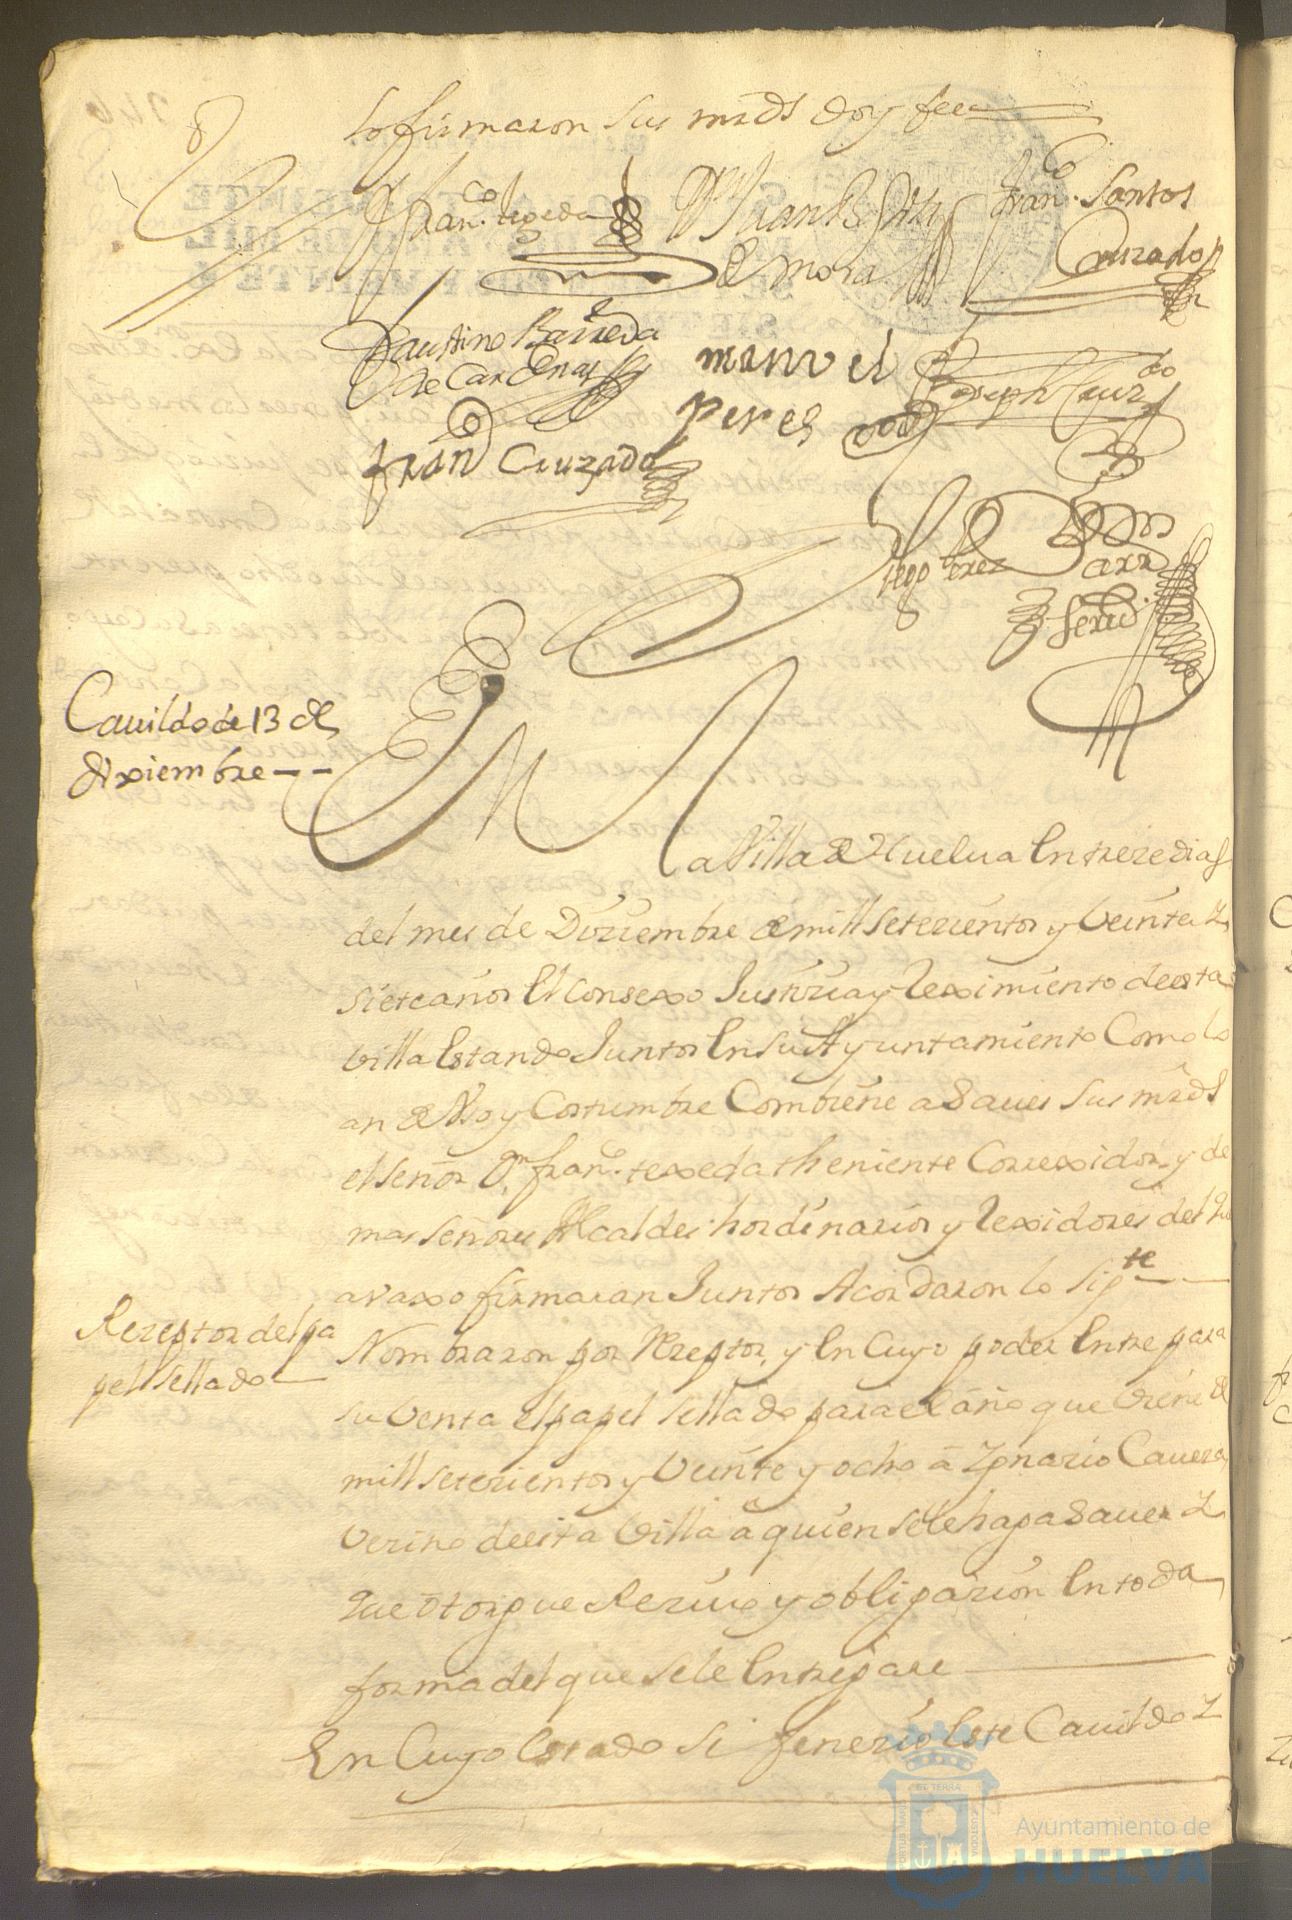 lo firmaron sus mrds doy fee
Franco. tegeda
Dn Juan
de mora
Franco. Santos
Cruzado
Faustino Barreda
de Cardenas
manuel
peres
Joseph Cruzdo
fran Cruzado
Diego Perez
serno.
Cauildo de 13 de
Dixiembre
En
la Villa de Huelua En treze dias
del mes de Diziembre de mill setezientos y Veinte y
siete años El Consexo Justizia y Reximiento de esta
Villa Estando Juntos En su Ayuntamiento Como lo
an de Uso y Costumbre Combiene a Sauer Sus mrds
el señor Dn. franco. texeda theniente Correxidor y de
mas señores Alcaldes hordinarios y Rexidores del que
avaxo firmaran Juntos Acordaron lo Sigte
Rezeptor del pa
pel sellado
Nombraron por Rezeptor, y En Cuyo poder Entre para
su Venta el papel sellado para el año que Viene de
mill setezientos y Veinte y ocho a Ygnazio Cauera
Vezino de esta Villa a quien se le haga Sauer y
que otorgue Reziuo y obligazion En toda
forma del que se le Entregare
En Cuyo Estado se fenezio Este Cauildo y
ET TERRA
CUSTODIA
Ayuntamiento de
HUELVA